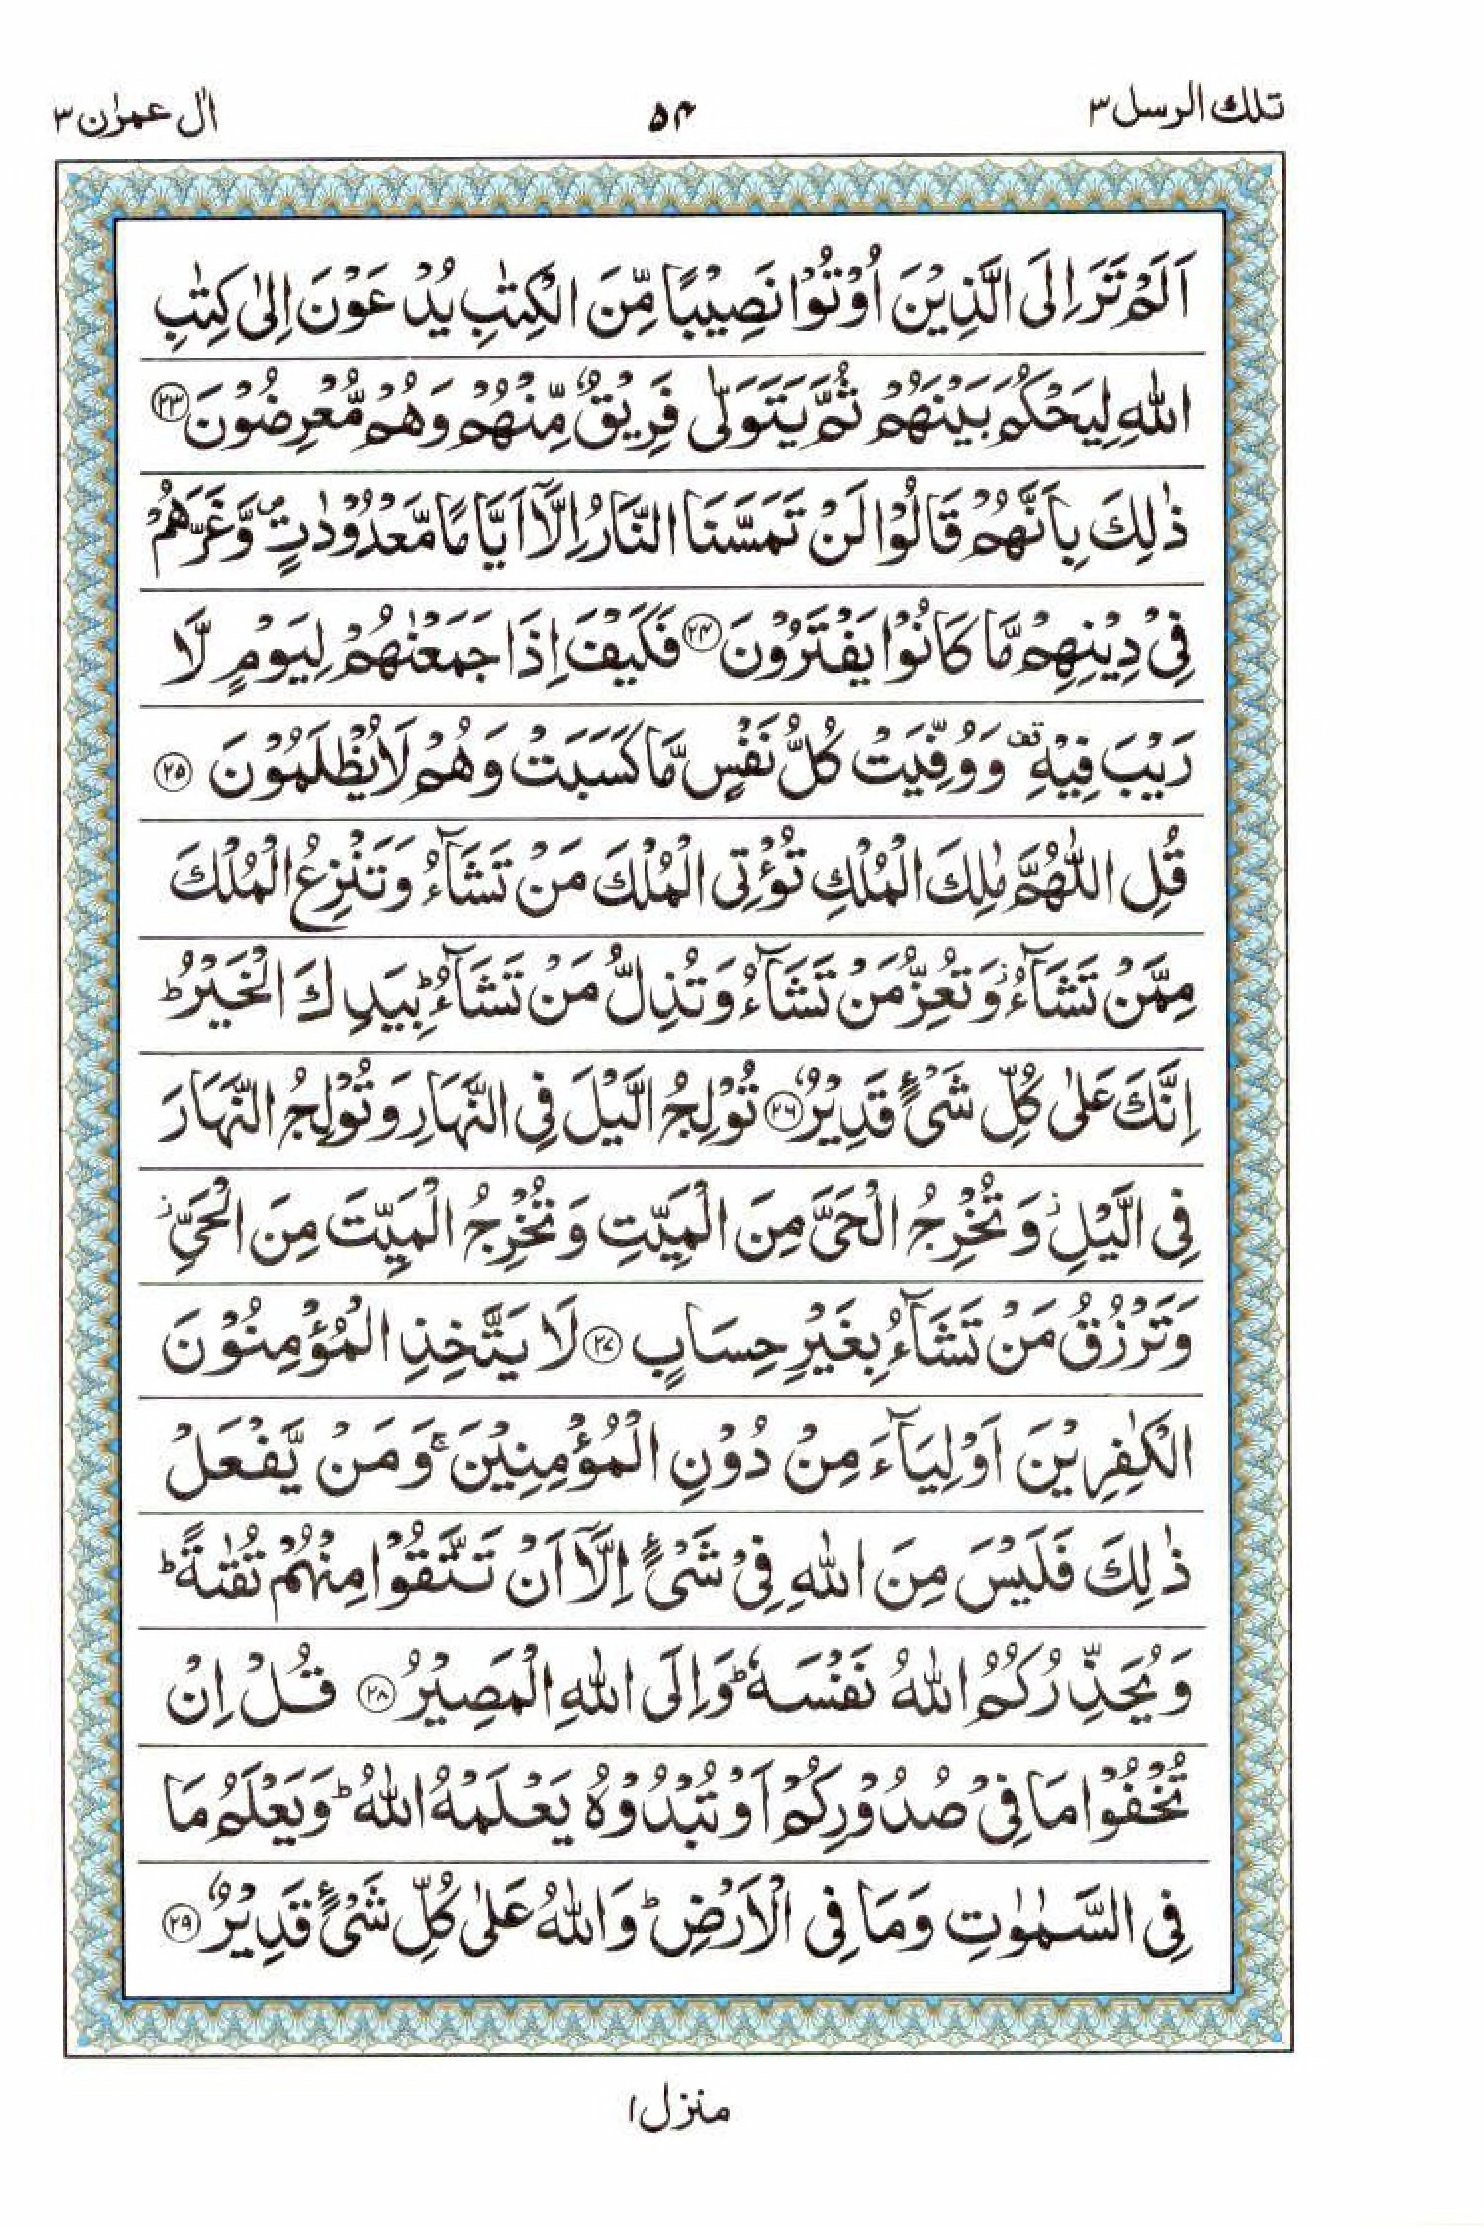 تلك الرسل ٣
۵۴
اٰل عمرٰن ٣
اَلَمْ تَرَ اِلَى الَّذِيْنَ اُوْتُوْا نَصِيْبًا مِّنَ الْكِتٰبِ يُدْعَوْنَ اِلٰى كِتٰبِ
اللّٰهِ لِيَحْكُمَ بَيْنَهُمْ ثُمَّ يَتَوَلّٰى فَرِيْقٌ مِّنْهُمْ وَهُمْ مُّعْرِضُوْنَ ﴿٢٣﴾
ذٰلِكَ بِاَنَّهُمْ قَالُوْا لَنْ تَمَسَّنَا النَّارُ اِلَّاۤ اَيَّامًا مَّعْدُوْدٰتٍ ۪ وَّغَرَّهُمْ
فِيْ دِيْنِهِمْ مَّا كَانُوْا يَفْتَرُوْنَ ﴿٢٤﴾ فَكَيْفَ اِذَا جَمَعْنٰهُمْ لِيَوْمٍ لَّا
رَيْبَ فِيْهِ ۫ وَوُفِّيَتْ كُلُّ نَفْسٍ مَّا كَسَبَتْ وَهُمْ لَا يُظْلَمُوْنَ ﴿٢٥﴾
قُلِ اللّٰهُمَّ مٰلِكَ الْمُلْكِ تُؤْتِى الْمُلْكَ مَنْ تَشَآءُ وَتَنْزِعُ الْمُلْكَ
مِمَّنْ تَشَآءُ ؗ وَتُعِزُّ مَنْ تَشَآءُ وَتُذِلُّ مَنْ تَشَآءُ ؕ بِيَدِكَ الْخَيْرُ ؕ
اِنَّكَ عَلٰى كُلِّ شَيْءٍ قَدِيْرٌ ﴿٢٦﴾ تُوْلِجُ الَّيْلَ فِى النَّهَارِ وَتُوْلِجُ النَّهَارَ
فِى الَّيْلِ ؗ وَتُخْرِجُ الْحَيَّ مِنَ الْمَيِّتِ وَتُخْرِجُ الْمَيِّتَ مِنَ الْحَيِّ ؗ
وَتَرْزُقُ مَنْ تَشَآءُ بِغَيْرِ حِسَابٍ ﴿٢٧﴾ لَا يَتَّخِذِ الْمُؤْمِنُوْنَ
الْكٰفِرِيْنَ اَوْلِيَآءَ مِنْ دُوْنِ الْمُؤْمِنِيْنَ ۚ وَمَنْ يَّفْعَلْ
ذٰلِكَ فَلَيْسَ مِنَ اللّٰهِ فِيْ شَيْءٍ اِلَّاۤ اَنْ تَتَّقُوْا مِنْهُمْ تُقٰىةً ؕ
وَيُحَذِّرُكُمُ اللّٰهُ نَفْسَهٗ ؕ وَاِلَى اللّٰهِ الْمَصِيْرُ ﴿٢٨﴾ قُلْ اِنْ
تُخْفُوْا مَا فِيْ صُدُوْرِكُمْ اَوْ تُبْدُوْهُ يَعْلَمْهُ اللّٰهُ ؕ وَيَعْلَمُ مَا
فِى السَّمٰوٰتِ وَمَا فِى الْاَرْضِ ؕ وَاللّٰهُ عَلٰى كُلِّ شَيْءٍ قَدِيْرٌ ﴿٢٩﴾
منزل ۱